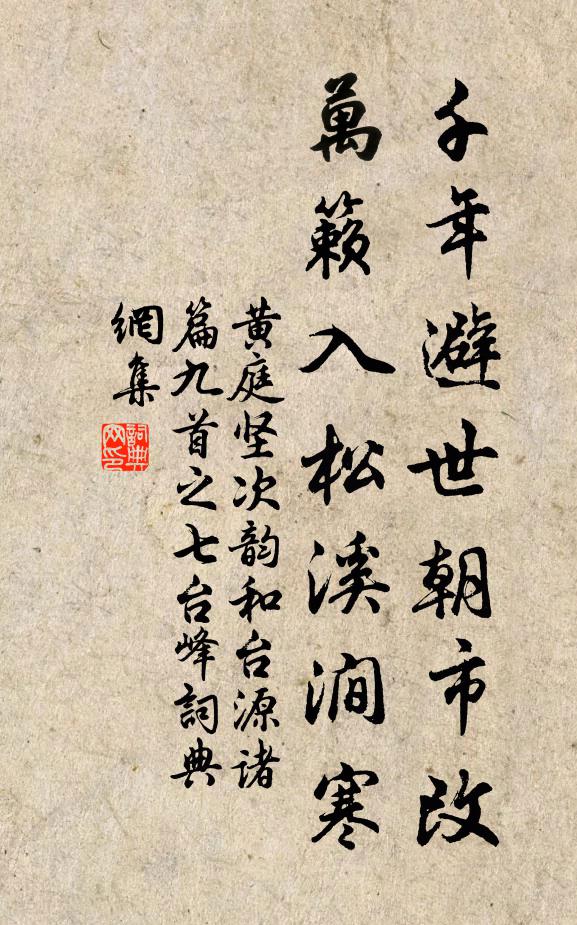 千年避世朝市改
萬籟入松溪澗寒
黄庭坚次韵和台源诸
篇九首之七台峰詞典
網集
詞典
网印